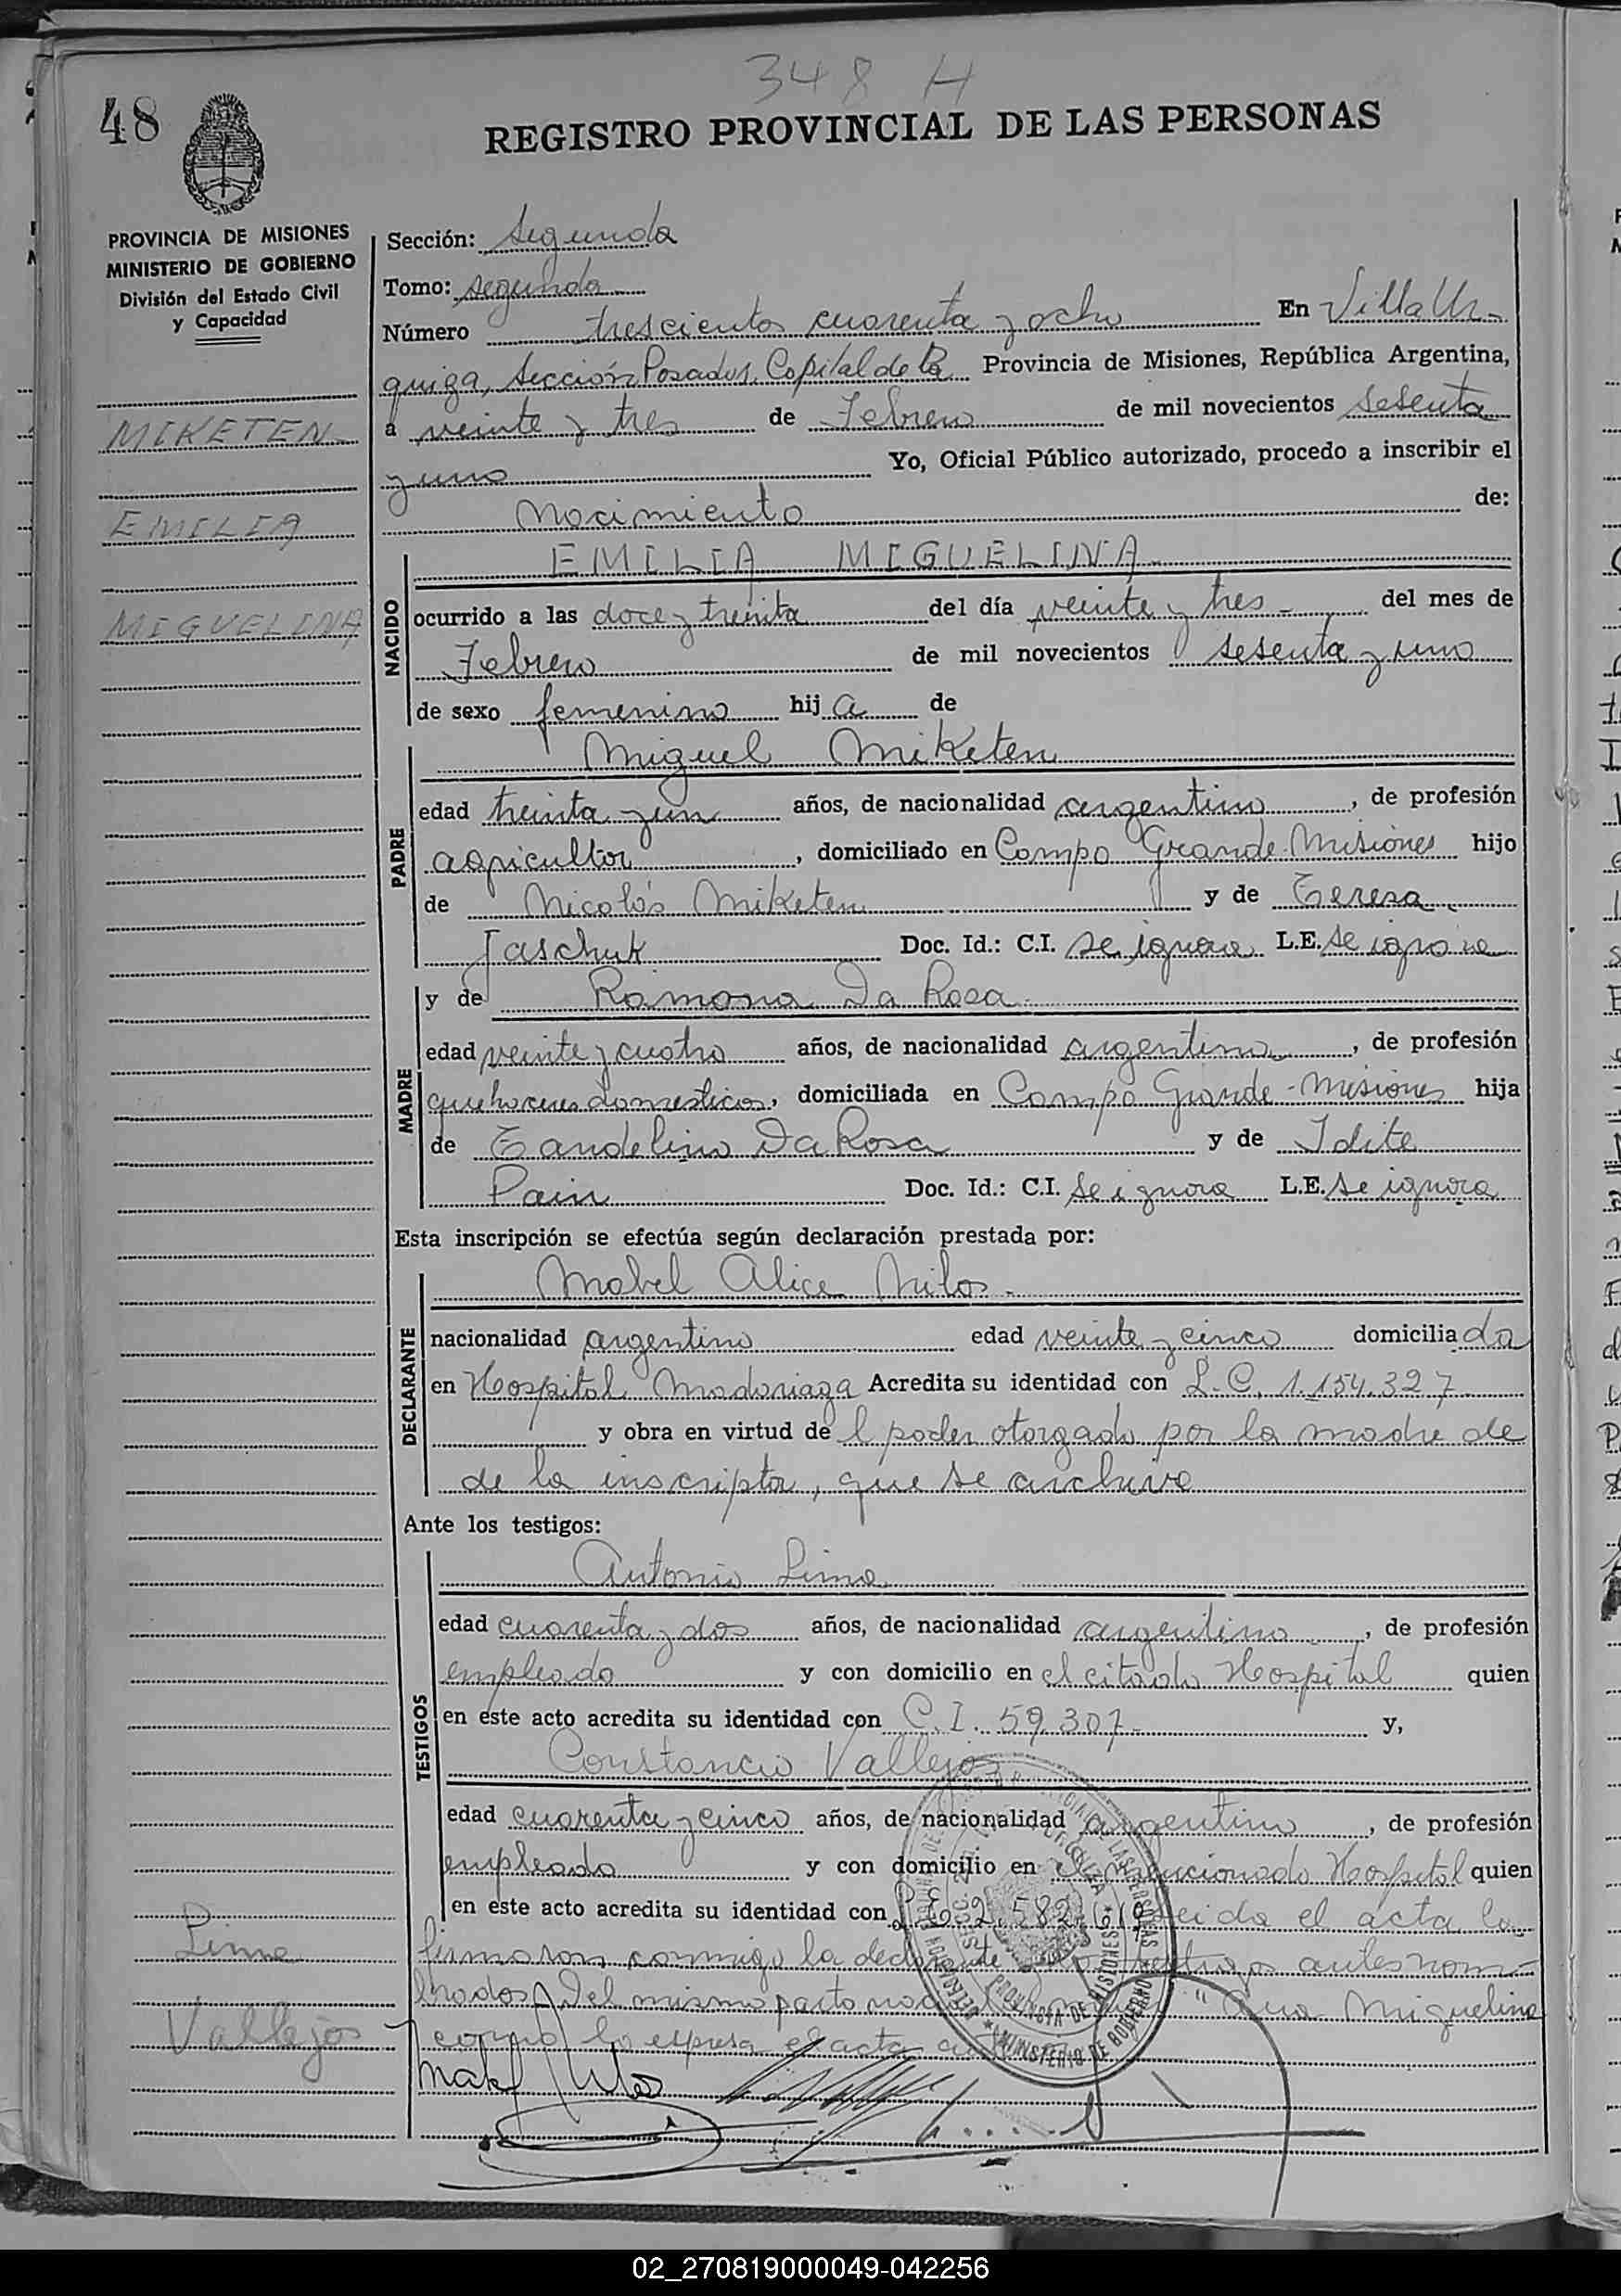 348 H
48
REGISTRO PROVINCIAL DE LAS PERSONAS
PROVINCIA DE MISIONES
MINISTERIO DE GOBIERNO
División del Estado Civil
y Capacidad
MIKETEN
EMILIA
MIGUELINA
Sección: Segunda
Tomo: segundo
Número trescientos cuarenta y ocho En Villa Ur-
quiza, Sección Posadas, Capital de la Provincia de Misiones, República Argentina,
a veinte y tres de Febrero de mil novecientos sesenta
y uno Yo, Oficial Público autorizado, procedo a inscribir el
Nacimiento de:
NACIDO
EMILIA MIGUELINA
ocurrido a las doce y treinta del día veinte y tres del mes de
Febrero de mil novecientos sesenta y uno
de sexo femenino hija de
PADRE
Miguel Miketen
edad treinta y un años, de nacionalidad argentino, de profesión
agricultor, domiciliado en Campo Grande-Misiones hijo
de Nicolás Miketen y de Teresa
Jaschuk Doc. Id.: C.I. se ignora L.E. se ignora
MADRE
y de Ramona Da Rosa
edad veinte y cuatro años, de nacionalidad argentina, de profesión
quehaceres domesticos, domiciliada en Campo Grande-Misiones hija
de Tandelino Da Rosa y de Idite
Pain Doc. Id.: C.I. Se ignora L.E. se ignora
Esta inscripción se efectúa según declaración prestada por:
DECLARANTE
Mabel Alice
nacionalidad argentina edad veinte y cinco domiciliada
en Hospital Madariaga Acredita su identidad con L.C. 1.154.327
y obra en virtud del poder otorgado por la madre de
de la inscripta, que se archiva
Ante los testigos:
TESTIGOS
Antonio Lima
edad cuarenta y dos años, de nacionalidad argentino, de profesión
empleado y con domicilio en el citado Hospital quien
en este acto acredita su identidad con C.I. 59.307 y,
Constancio Vallejos
edad cuarenta y cinco años, de nacionalidad argentino, de profesión
empleado y con domicilio en el mencionado Hospital quien
en este acto acredita su identidad con 2.582 Leida el acta la
firmaron conmigo la declarante testigos antes nom-
brados. Del mismo parto "Ana Miguelina
como lo espresa el acta
Lima
Vallejos
PROVINCIA DE MISIONES
MINISTERIO DE GOBIERNO
02_270819000049-042256